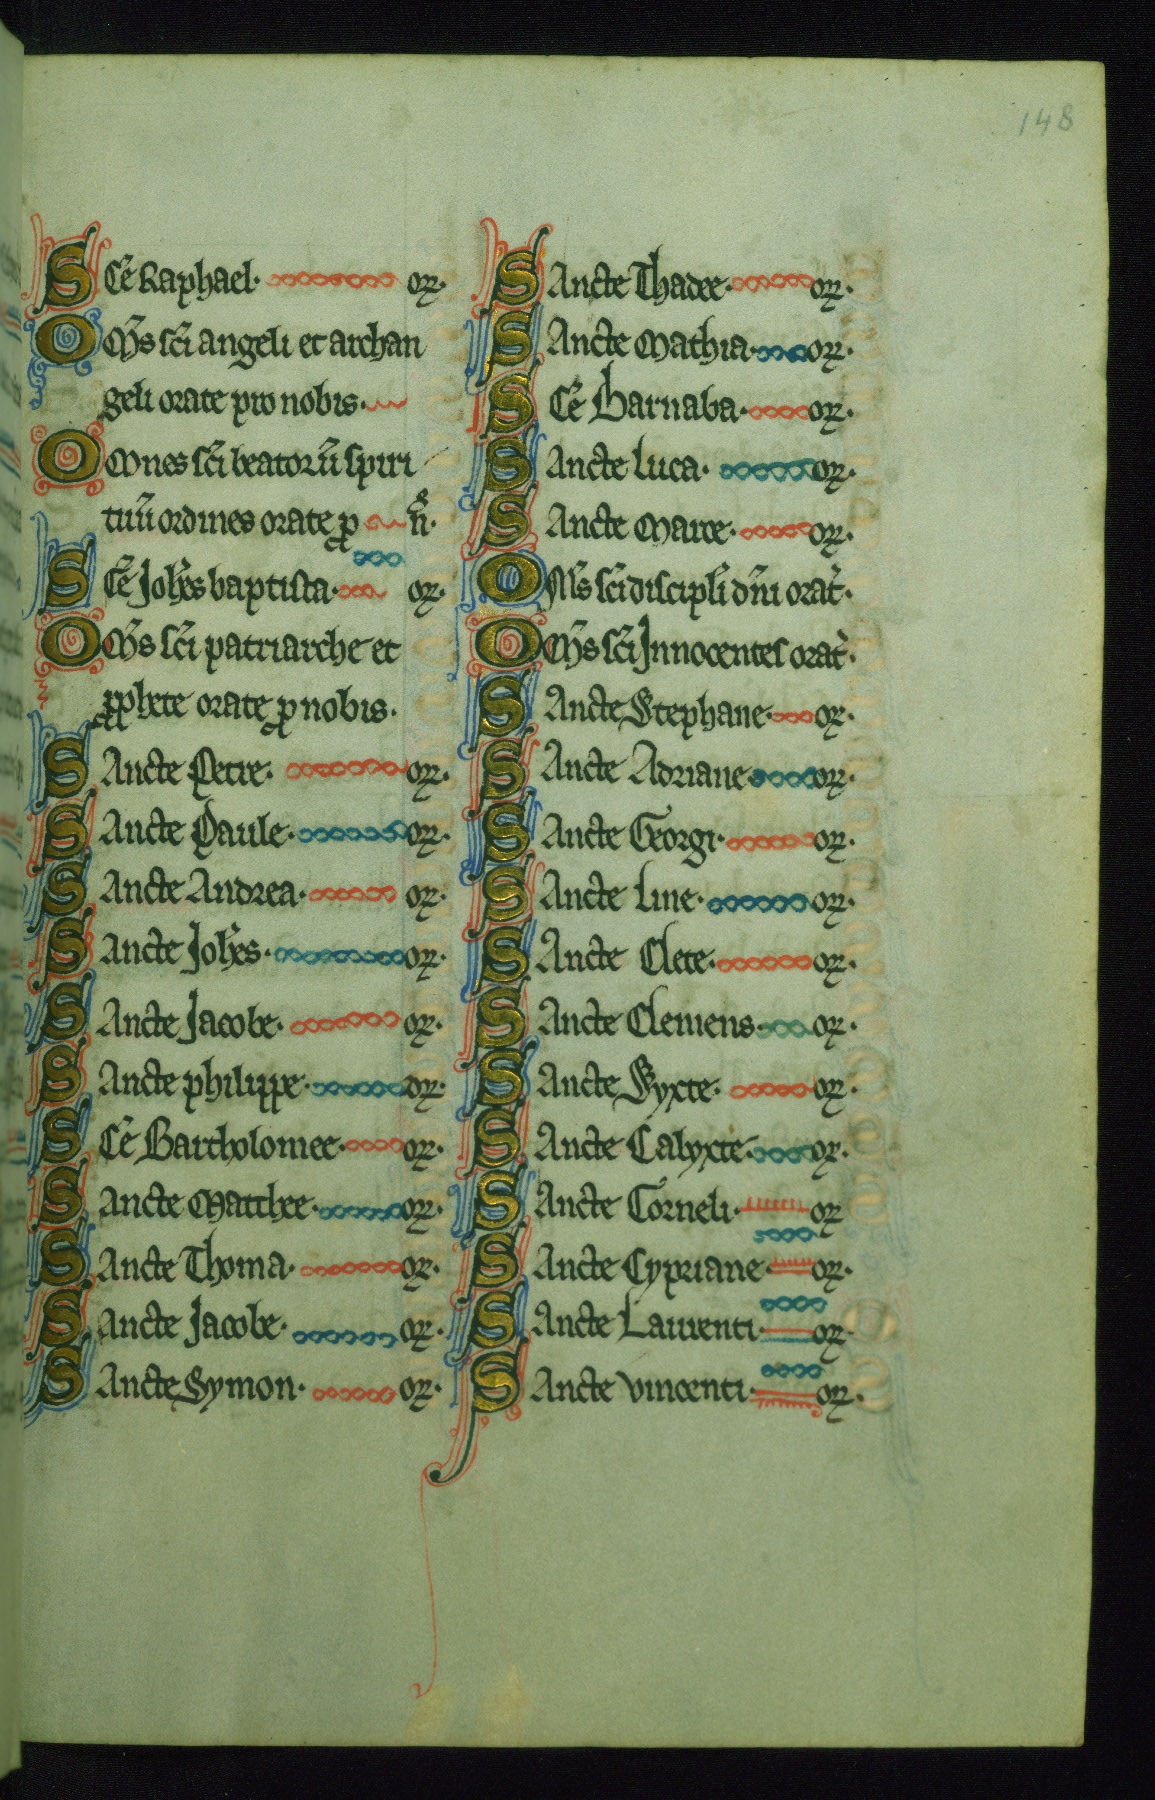 148
SCe Raphael. or.
OM̄s sc̄i angeli et archan
geli orate pro nobis.
OMnes sc̄i beatorū spiri
tuū ordines orate ꝓ n̄.
SCe Joh̄es baptista. or.
OM̄s sc̄i patriarche et
ꝓphete orate ꝓ nobis.
SAncte Petre. or.
SAncte Paule. or.
SAncte Andrea. or.
SAncte Joh̄es. or.
SAncte Jacobe. or.
SAncte philippe. or.
SCe Bartholomee. or.
SAncte Mathee. or.
SAncte Thoma. or.
SAncte Jacobe. or.
SAncte Symon. or.
SAncte Thadee. or.
SAncte Mathia. or.
SCe Barnaba. or.
SAncte Luca. or.
SAncte Marce. or.
OM̄s sc̄i discipl̄i dn̄i orat̄.
OM̄s sc̄i Innocentes orat̄.
SAncte Stephane. or.
SAncte Adriane. or.
SAncte Georgi. or.
SAncte Line. or.
SAncte Clete. or.
SAncte Clemens. or.
SAncte Syxte. or.
SAncte Calyxte. or.
SAncte Corneli. or
SAncte Cypriane. or.
SAncte Laurenti. or.
SAncte Vincenti. or.